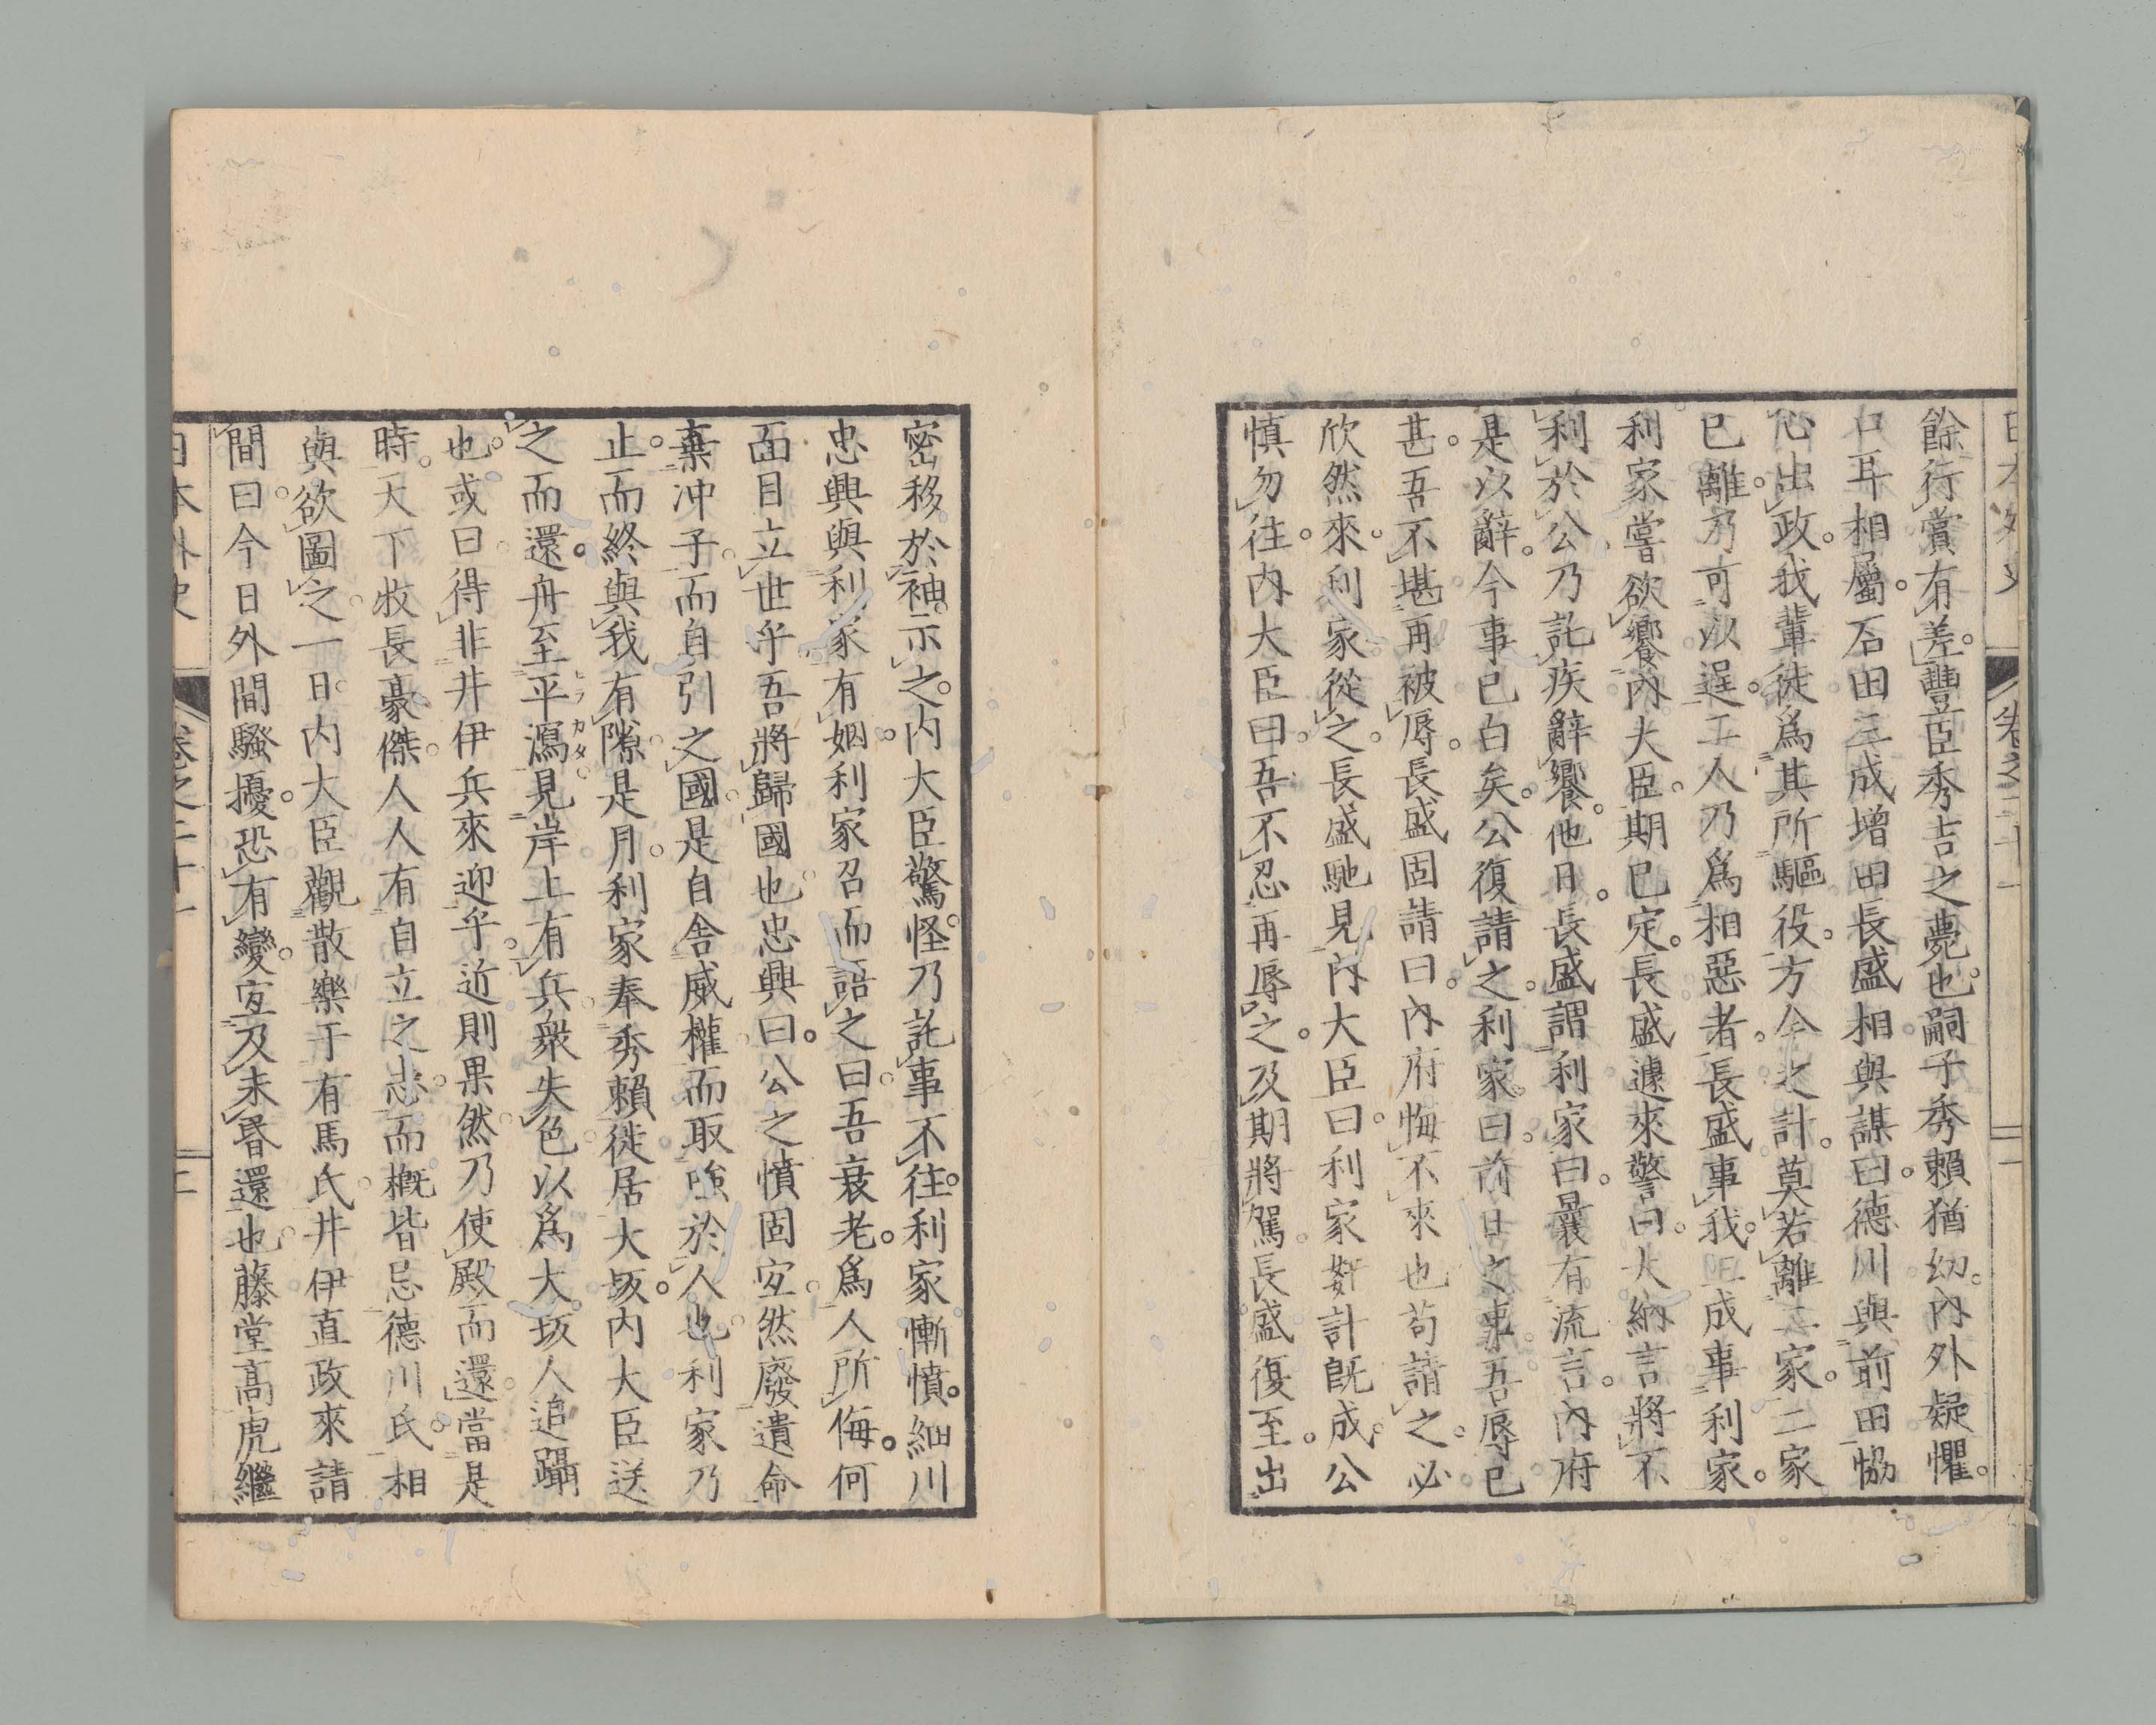 日本外史 卷之二十一 二
餘行賞有差。豐臣秀吉之薨也。嗣子秀賴猶幼。內外疑懼。
口耳相屬。石田三成增田長盛相與謀曰。德川與前田恊
心出政。我輩徒爲其所驅役。方今之計。莫若離二家。二家
已離。乃可以逞。二人乃爲相惡者。長盛事我。三成事利家。
利家嘗欲饗內大臣。期已定。長盛遽來警曰。大納言將不
利於公。乃託疾辭饗。他日。長盛謂利家曰。曩有流言。內府
是以辭。今事已白矣。公復請之。利家曰。前日之事。吾辱已
甚。吾不堪再被辱。長盛固請曰。內府悔不來也。苟請之。必
欣然來。利家從之。長盛馳見內大臣曰。利家姧計既成。公
愼勿往。內大臣曰。吾不忍再辱之。及期將駕。長盛復至。出
密移於袖。示之。內大臣驚怪。乃託事不往。利家慚憤。細川
忠興與利家有姻。利家召而語之曰。吾衰老。爲人所侮。何
面目立世乎。吾將歸國也。忠興曰。公之憤固宜。然廢遺命
棄冲子。而自引之國。是自舍威權。而取強於人也。利家乃
止。而終與我有隙。是月。利家奉秀賴徙居大坂。內大臣送
之而還。舟至平瀉ヒラカタ。見岸上有兵。衆失色。以爲大坂人追躡
也。或曰。得非井伊兵來迎乎。近則果然。乃使殿而還。當是
時。天下牧長豪傑。人人有自立之志。而概皆忌德川氏。相
與欲圖之。一日。內大臣觀散樂于有馬氏。井伊直政來請
間曰。今日外間騷擾。恐有變。宜及未昏還也。藤堂高虎繼
日本外史 卷之二十一 二